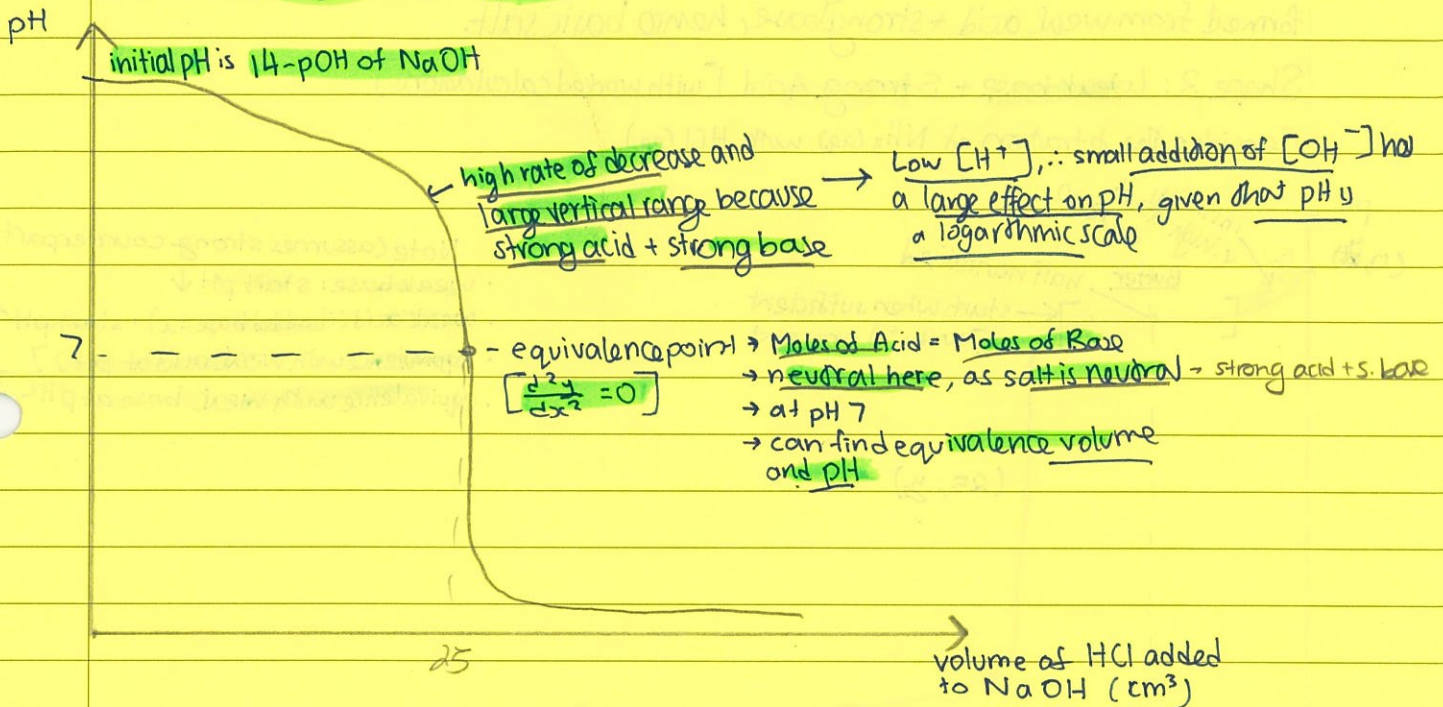 pH
initial pH is 14-pOH of NaOH
high rate of decrease and
large vertical range because
strong acid + strong base
→ Low [H⁺], ∴ small addition of [OH⁻] has
a large effect on pH, given that pH is
a logarithmic scale
7
- equivalence point → Moles of Acid = Moles of Base
[d²y/dx² = 0]
→ neutral here, as salt is neutral - strong acid + s. base
→ at pH 7
→ can find equivalence volume
and pH
25
volume of HCl added
to NaOH (cm³)